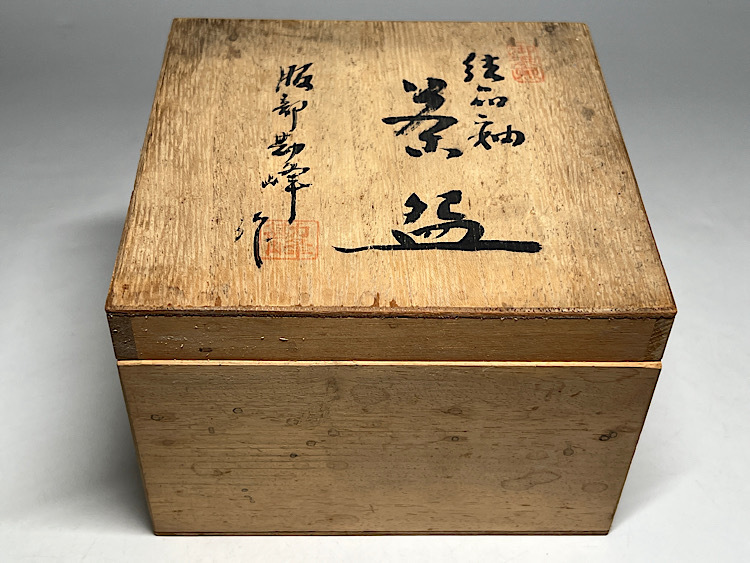 結晶釉
茶盌
服部勘峰作